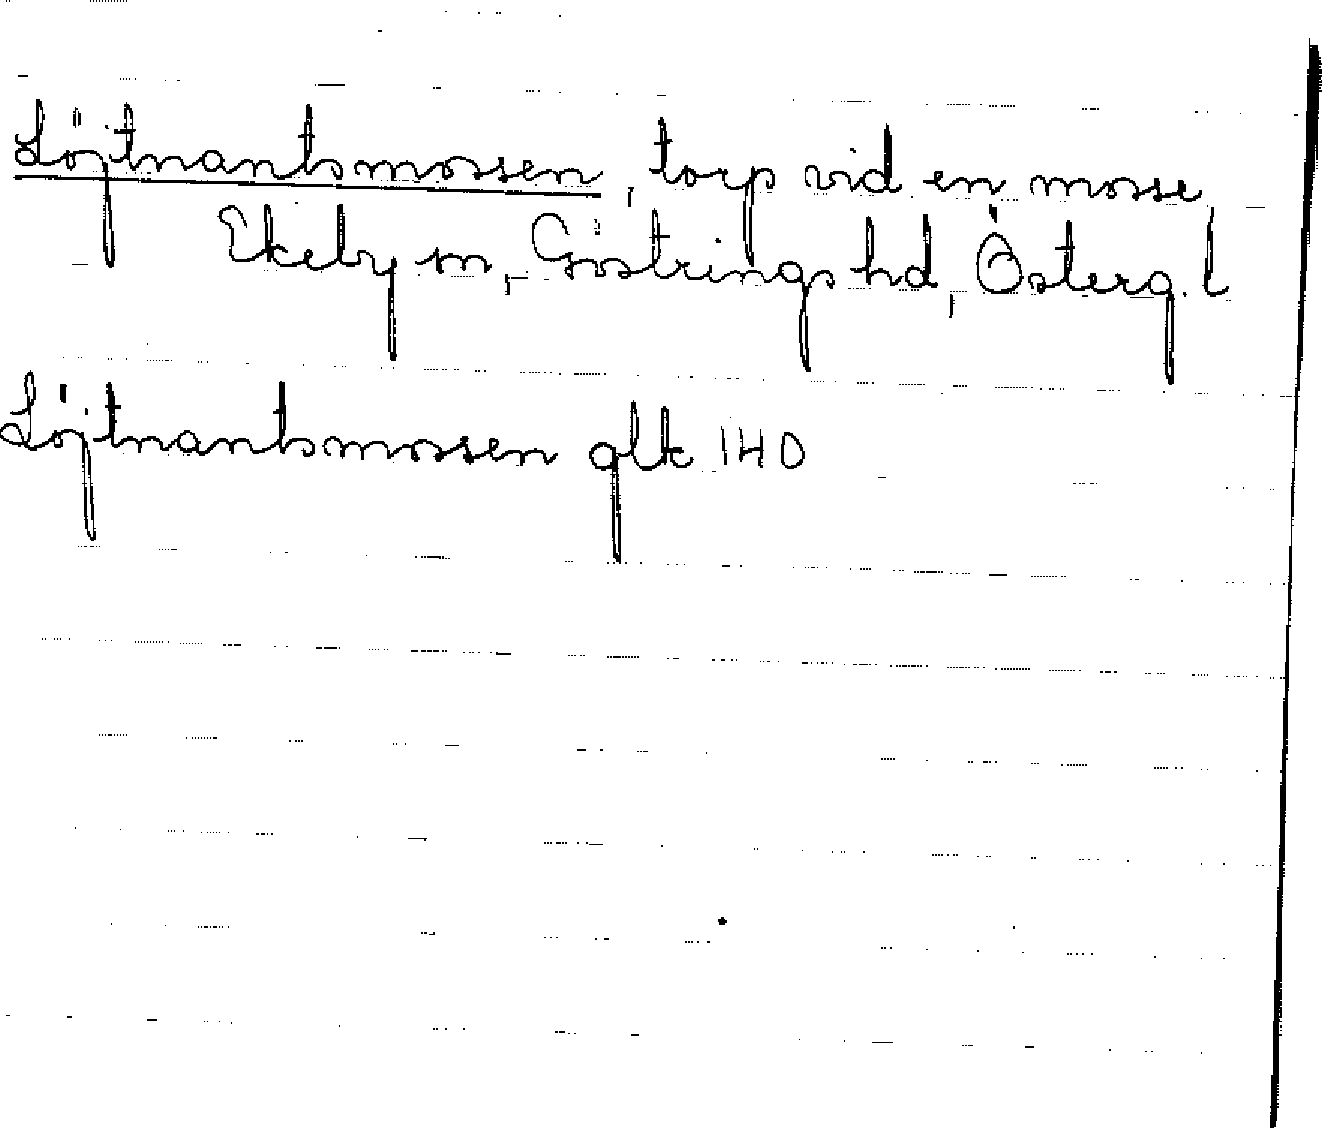 Löjtnantsmossen, torp vid en mosse
Ekeby sn, Göstrings hd, Österg. l
Löjtnantsmossen glk 140